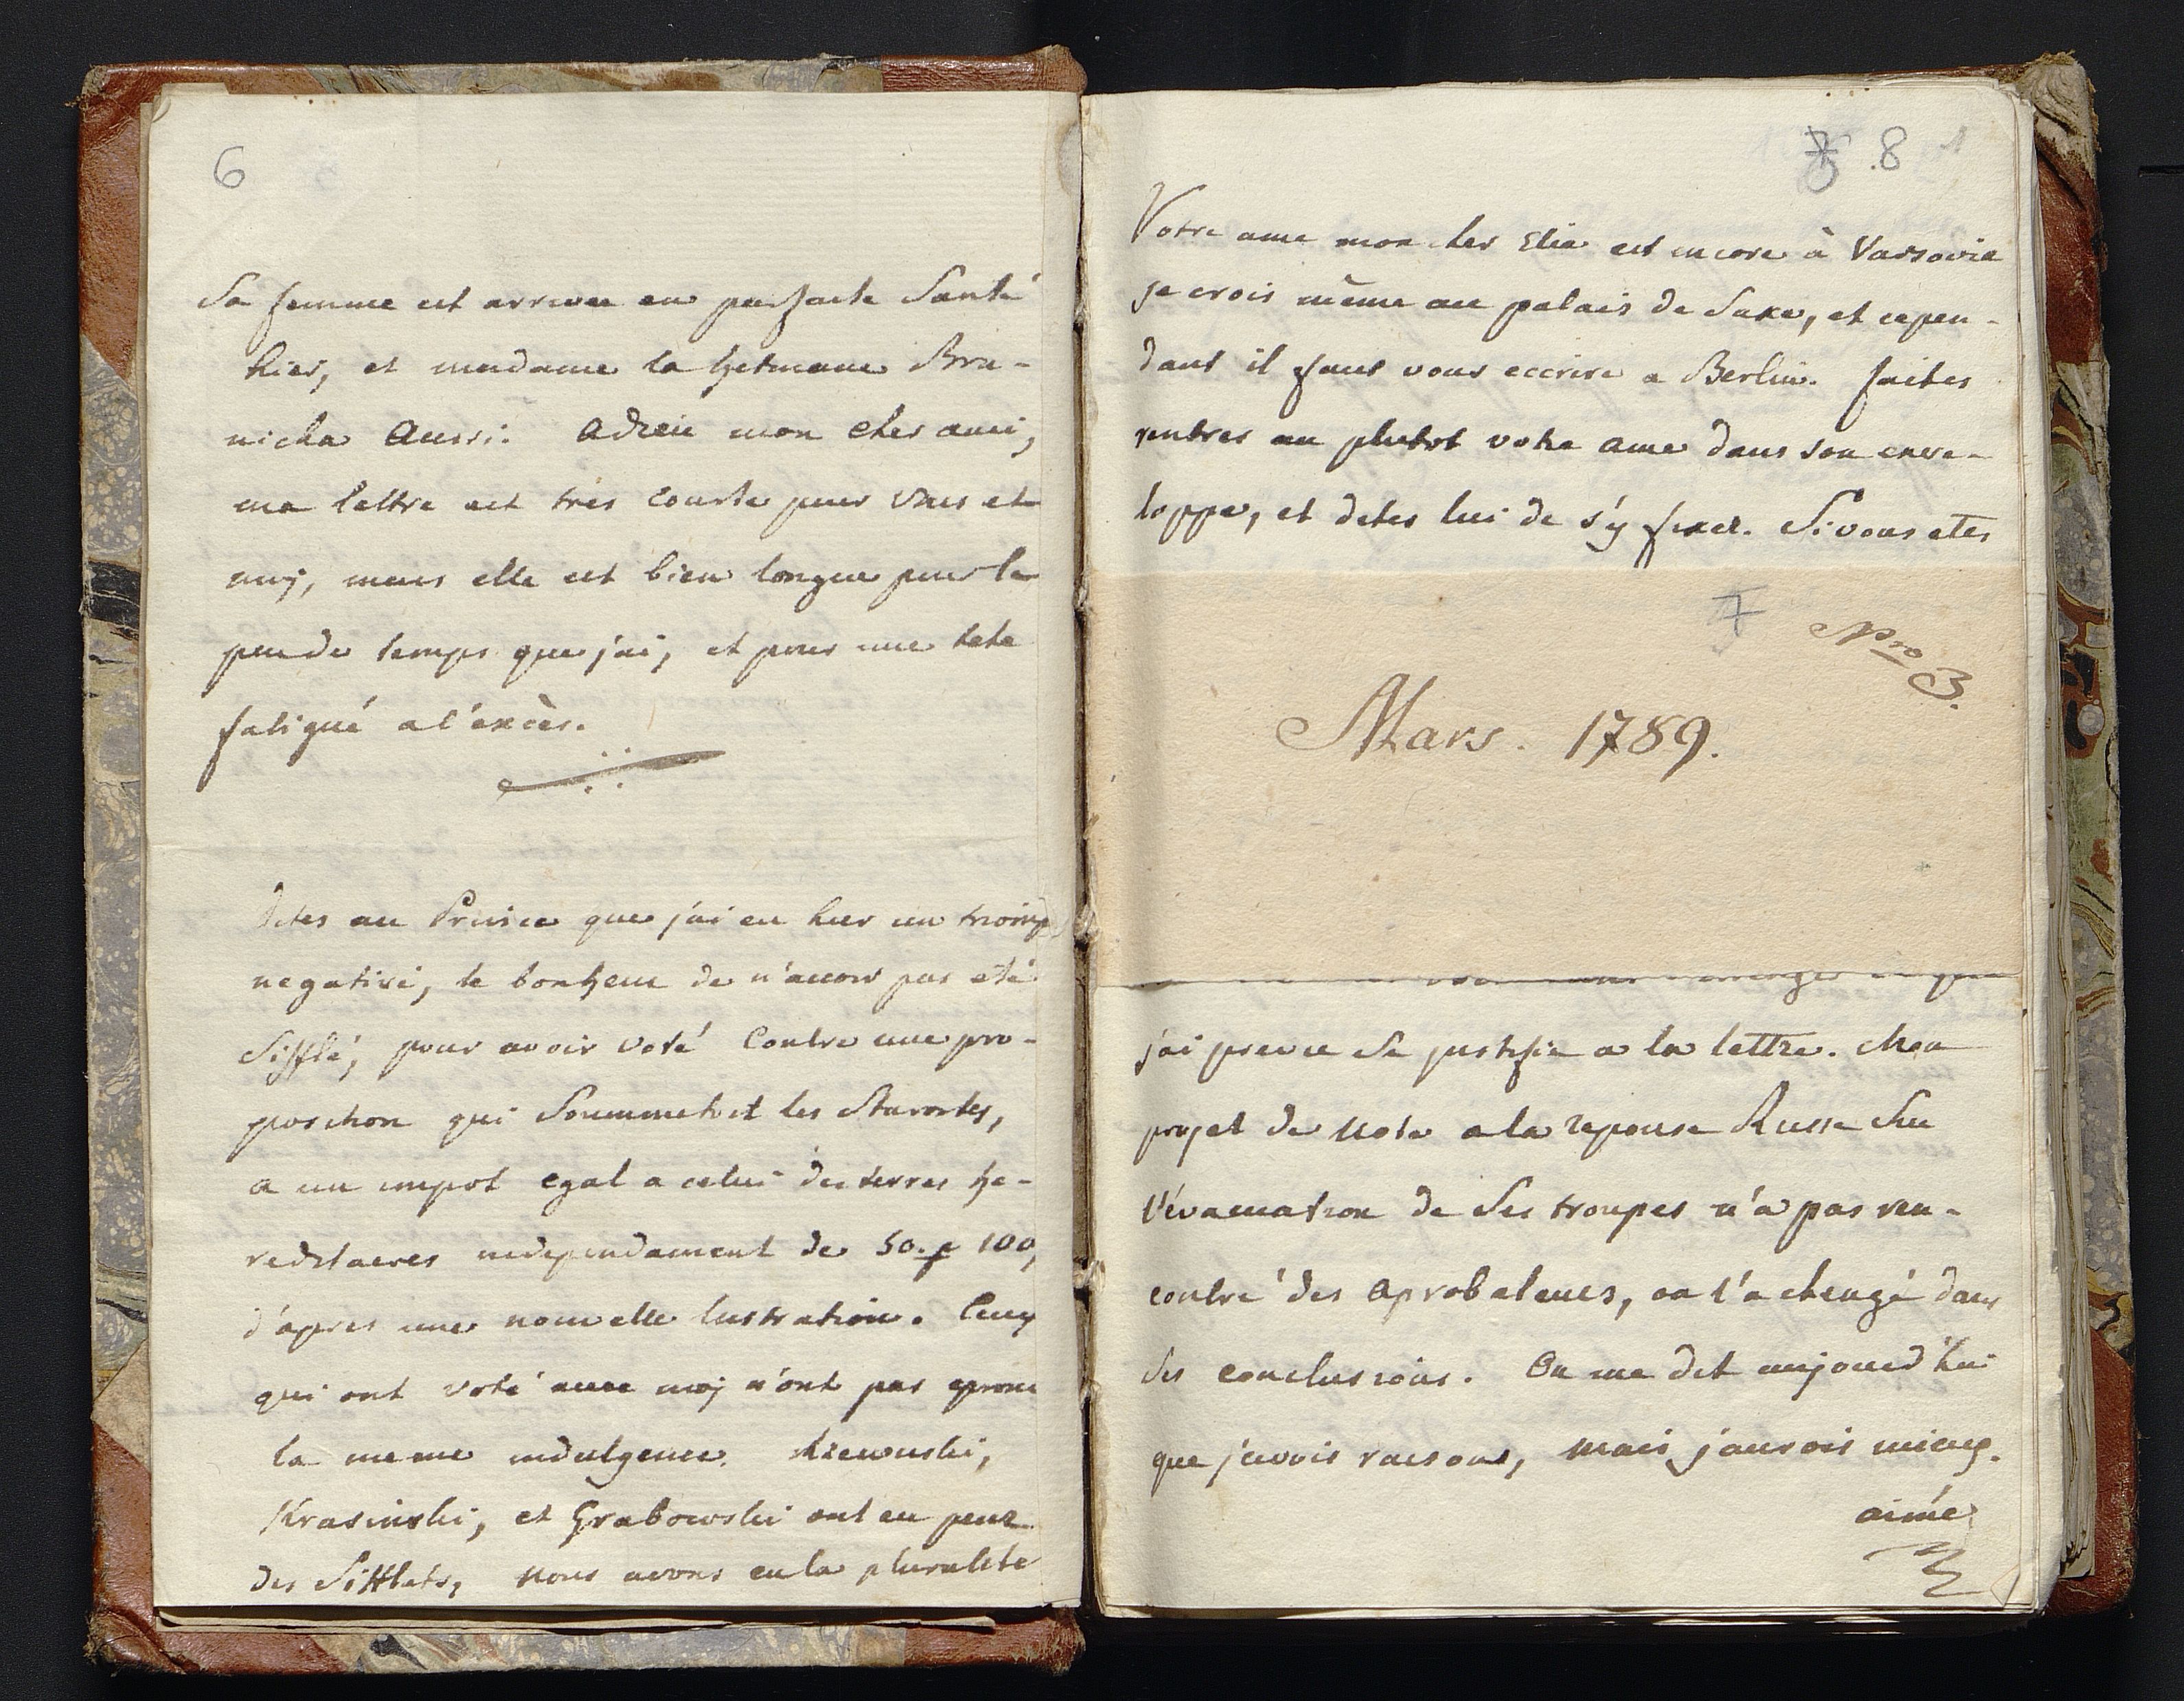 6
Sa femme est arrivee en parfaite Santé
hier, et madame la hetmane Bra-
nicka Aussi. Adieu mon cher ami,
ma lettre est très courte pour vous et
moj, mais elle est bien longue pour le
peu de temps que j'ai, et pour une tete
fatigué a l'excès.
Dites au Prince que j'ai eu hier un triomp
negativé, le bonheur de n'avoir pas eté
Sifflé, pour avoir voté Contre une pro-
position qui Soummetoit les Starostes,
a un impot egal a celui des terres he-
reditaires independament de 50. p 100,
d'apres une nouvelle lustration. Ceux
qui ont voté avec moj n'ont pas eprouv
la meme indulgence. Rzewuski,
Krasinski, et Grabowski ont eu pour
des Sifflets, Nous avons eu la pluralité
8
Votre ame mon cher Elie est encore à Varsovie
je crois même au palais de Saxe, et cepen-
dant il faut vous eccrire a Berlin. faites
rentrer au plutot votre ame dans son enve-
loppe, et dites lui de s'y fixer. Si vous etes
7
Nro 3.
Mars. 1789.
j'ai prevu se justifie a la lettre. Mon
projet de Note a la reponse Russe Sur
l'évacuation de Ses troupes n'a pas ren-
contré des aprobateurs, on l'a changé dans
Ses conclusions. On me dit aujourd'hui
que j'avois raison, mais j'aurois mieux.
aimé